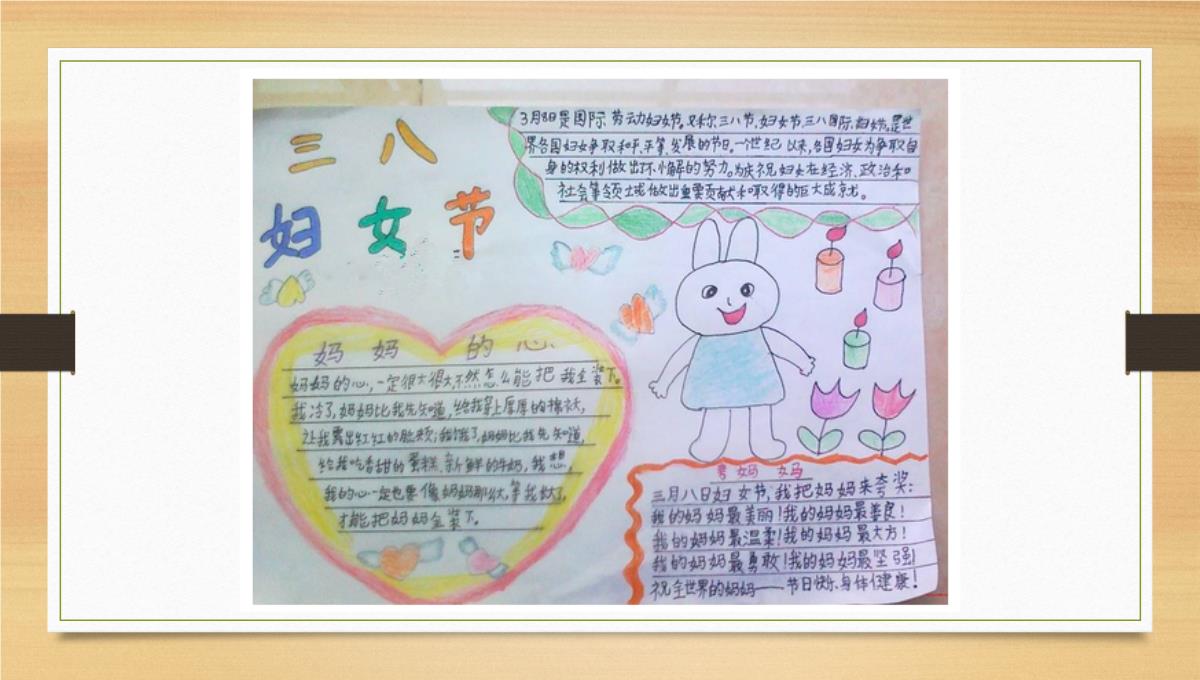 三八
妇女节
3月8日是国际劳动妇女节。又称三八节、妇女节、三八国际妇女节。是世
界各国妇女争取和平、平等、发展的节日。一个世纪以来,各国妇女为争取自
身的权利做出不懈的努力。为庆祝妇女在经济、政治和
社会等领域做出重要贡献和取得的巨大成就。
妈妈的心
妈妈的心,一定很大很大,不然怎么能把我全装下。
我冷了,妈妈比我先知道,给我穿上厚厚的棉袄,
让我露出红红的脸颊;我饿了,妈妈比我先知道,
给我吃香甜的蛋糕、新鲜的牛奶,我想,
我的心一定也要像妈妈那么大,等我长大了,
才能把妈妈全装下。
夸妈妈
三月八日妇女节,我把妈妈来夸奖:
我的妈妈最美丽!我的妈妈最善良!
我的妈妈最温柔!我的妈妈最大方!
我的妈妈最勇敢!我的妈妈最坚强!
祝全世界的妈妈——节日快乐、身体健康!